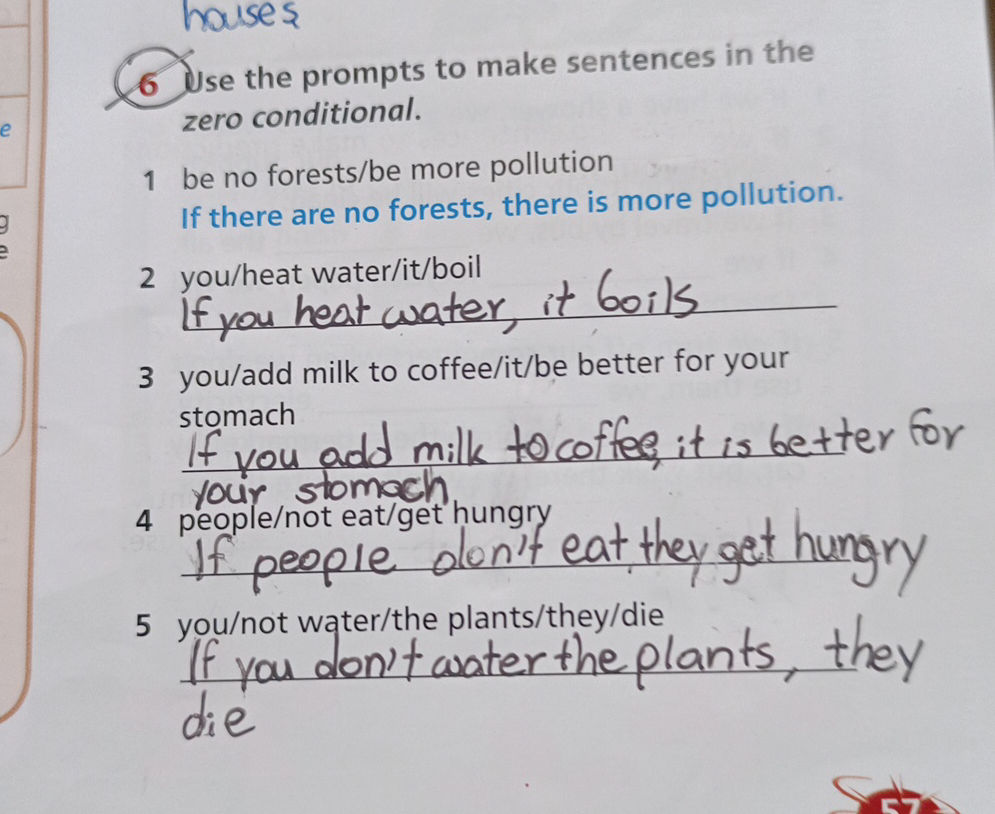 houses
6 Use the prompts to make sentences in the
zero conditional.
e
1 be no forests/be more pollution
g
If there are no forests, there is more pollution.
e
2 you/heat water/it/boil
If you heat water, it boils
3 you/add milk to coffee/it/be better for your
stomach
If you add milk to coffee, it is better for
your stomach
4 people/not eat/get hungry
If people don't eat, they get hungry
5 you/not water/the plants/they/die
If you don't water the plants, they
die
57